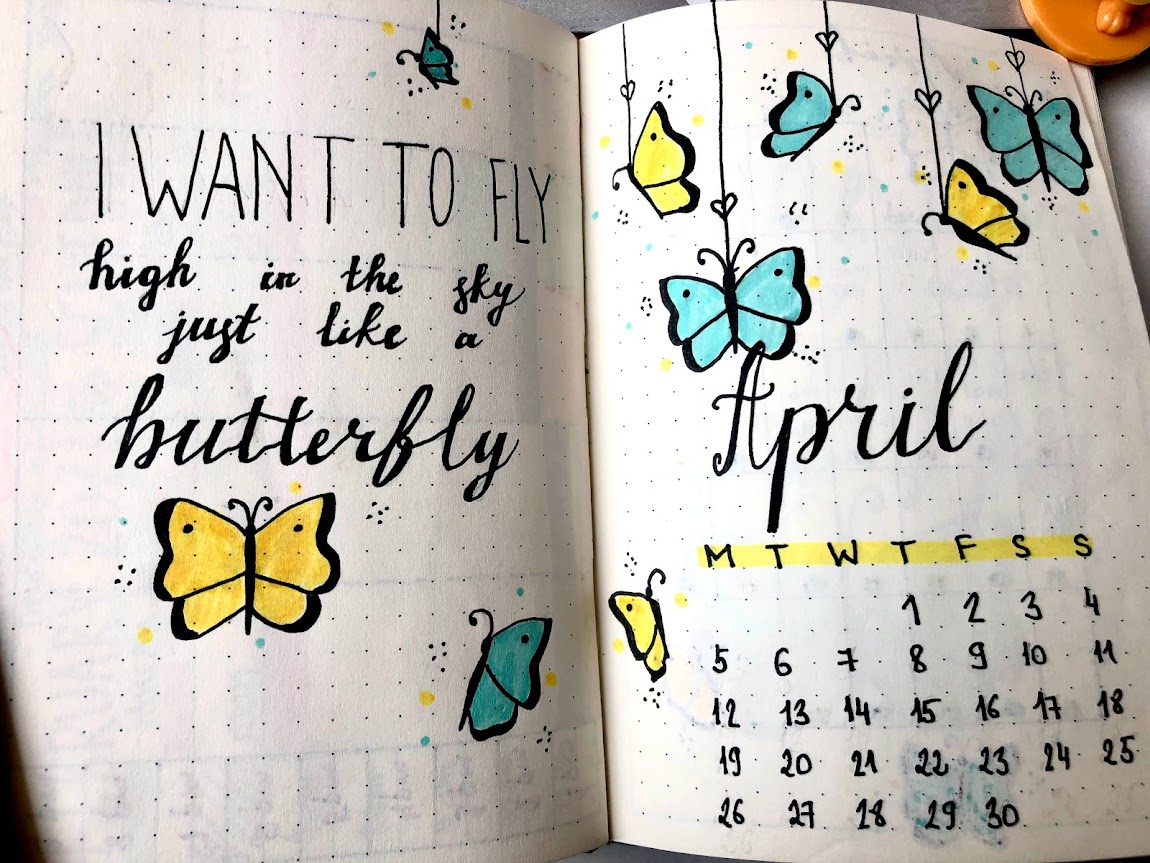 I WANT TO FLY
high in the sky
just like a
butterfly
April
M T W T F S S
1 2 3 4
5 6 7 8 9 10 11
12 13 14 15 16 17 18
19 20 21 22 23 24 25
26 27 28 29 30